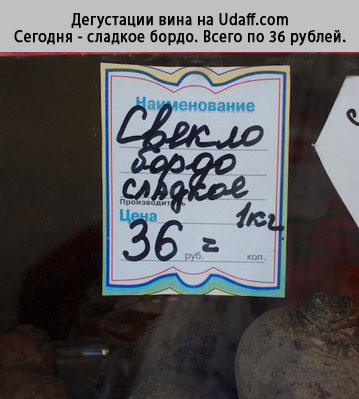 Дегустации вина на Udaff.com
Сегодня - сладкое бордо. Всего по 36 рублей.
Наименование
Свекло
бордо
сладкое
Производитель
Цена 1кг
36 = руб. коп.